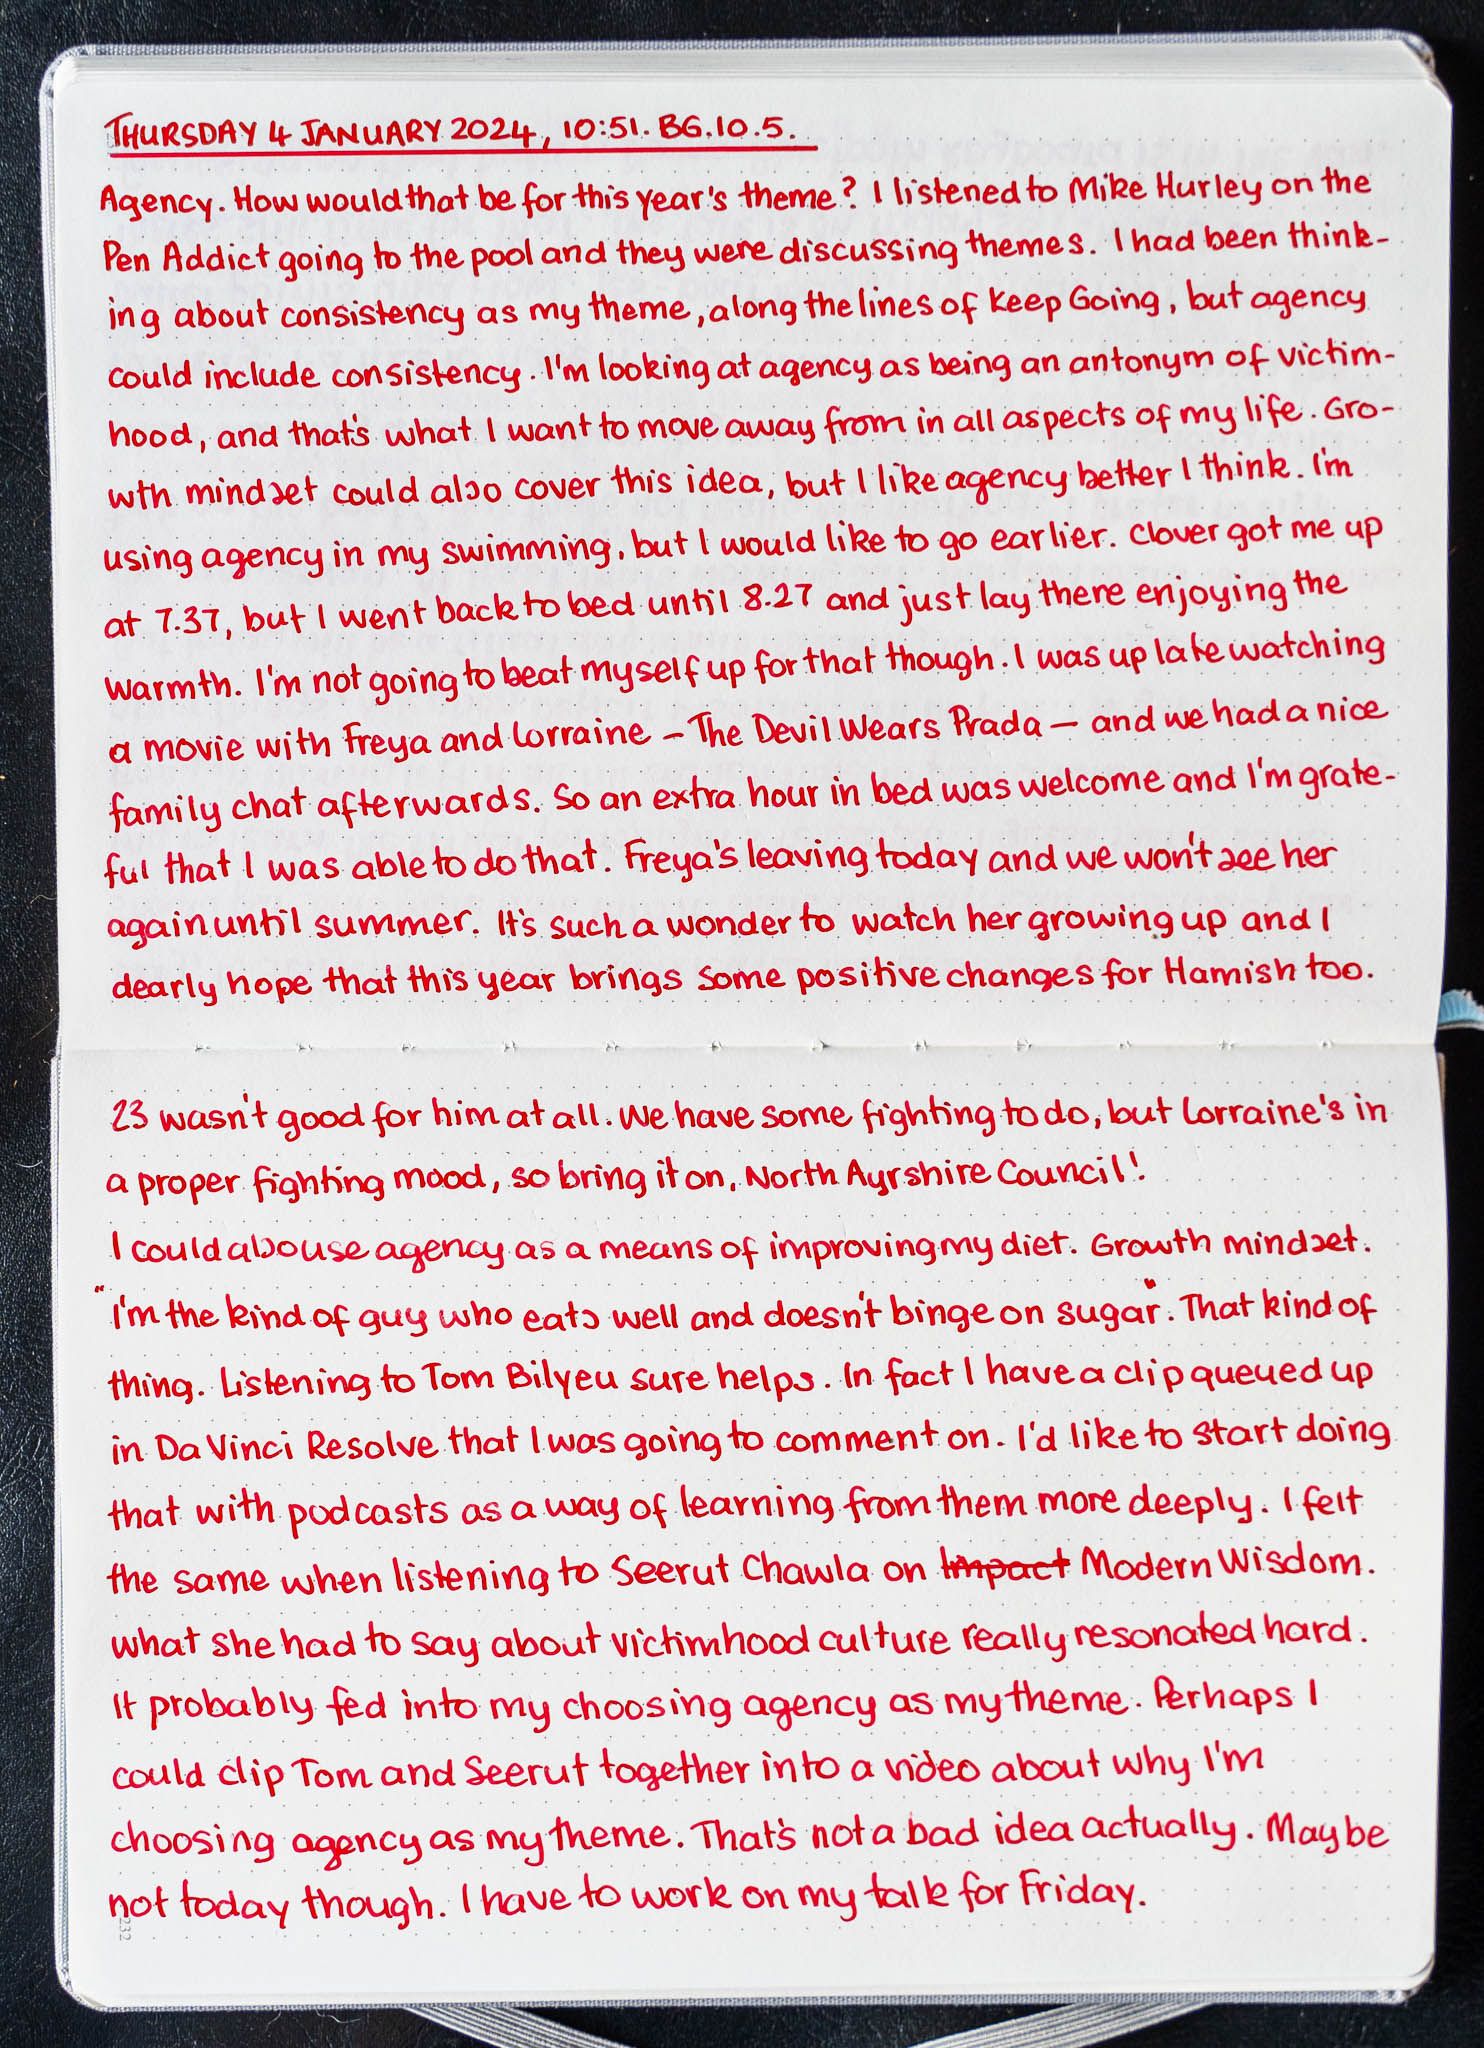 THURSDAY 4 JANUARY 2024, 10:51. BG.10.5.
Agency. How would that be for this year's theme? I listened to Mike Hurley on the
Pen Addict going to the pool and they were discussing themes. I had been think-
ing about consistency as my theme, along the lines of Keep Going, but agency
could include consistency. I'm looking at agency as being an antonym of victim-
hood, and that's what I want to move away from in all aspects of my life. Gro-
wth mindset could also cover this idea, but I like agency better I think. I'm
using agency in my swimming, but I would like to go earlier. Clover got me up
at 7.37, but I went back to bed until 8.27 and just lay there enjoying the
warmth. I'm not going to beat myself up for that though. I was up late watching
a movie with Freya and Lorraine – The Devil Wears Prada – and we had a nice
family chat afterwards. So an extra hour in bed was welcome and I'm grate-
ful that I was able to do that. Freya's leaving today and we won't see her
again until summer. It's such a wonder to watch her growing up and I
dearly hope that this year brings some positive changes for Hamish too.
23 wasn't good for him at all. We have some fighting to do, but Lorraine's in
a proper fighting mood, so bring it on, North Ayrshire Council!
I could also use agency as a means of improving my diet. Growth mindset.
"I'm the kind of guy who eats well and doesn't binge on sugar". That kind of
thing. Listening to Tom Bilyeu sure helps. In fact I have a clip queued up
in DaVinci Resolve that I was going to comment on. I'd like to start doing
that with podcasts as a way of learning from them more deeply. I felt
the same when listening to Seerut Chawla on Impact Modern Wisdom.
What she had to say about victimhood culture really resonated hard.
It probably fed into my choosing agency as my theme. Perhaps I
could clip Tom and Seerut together into a video about why I'm
choosing agency as my theme. That's not a bad idea actually. Maybe
not today though. I have to work on my talk for Friday.
232